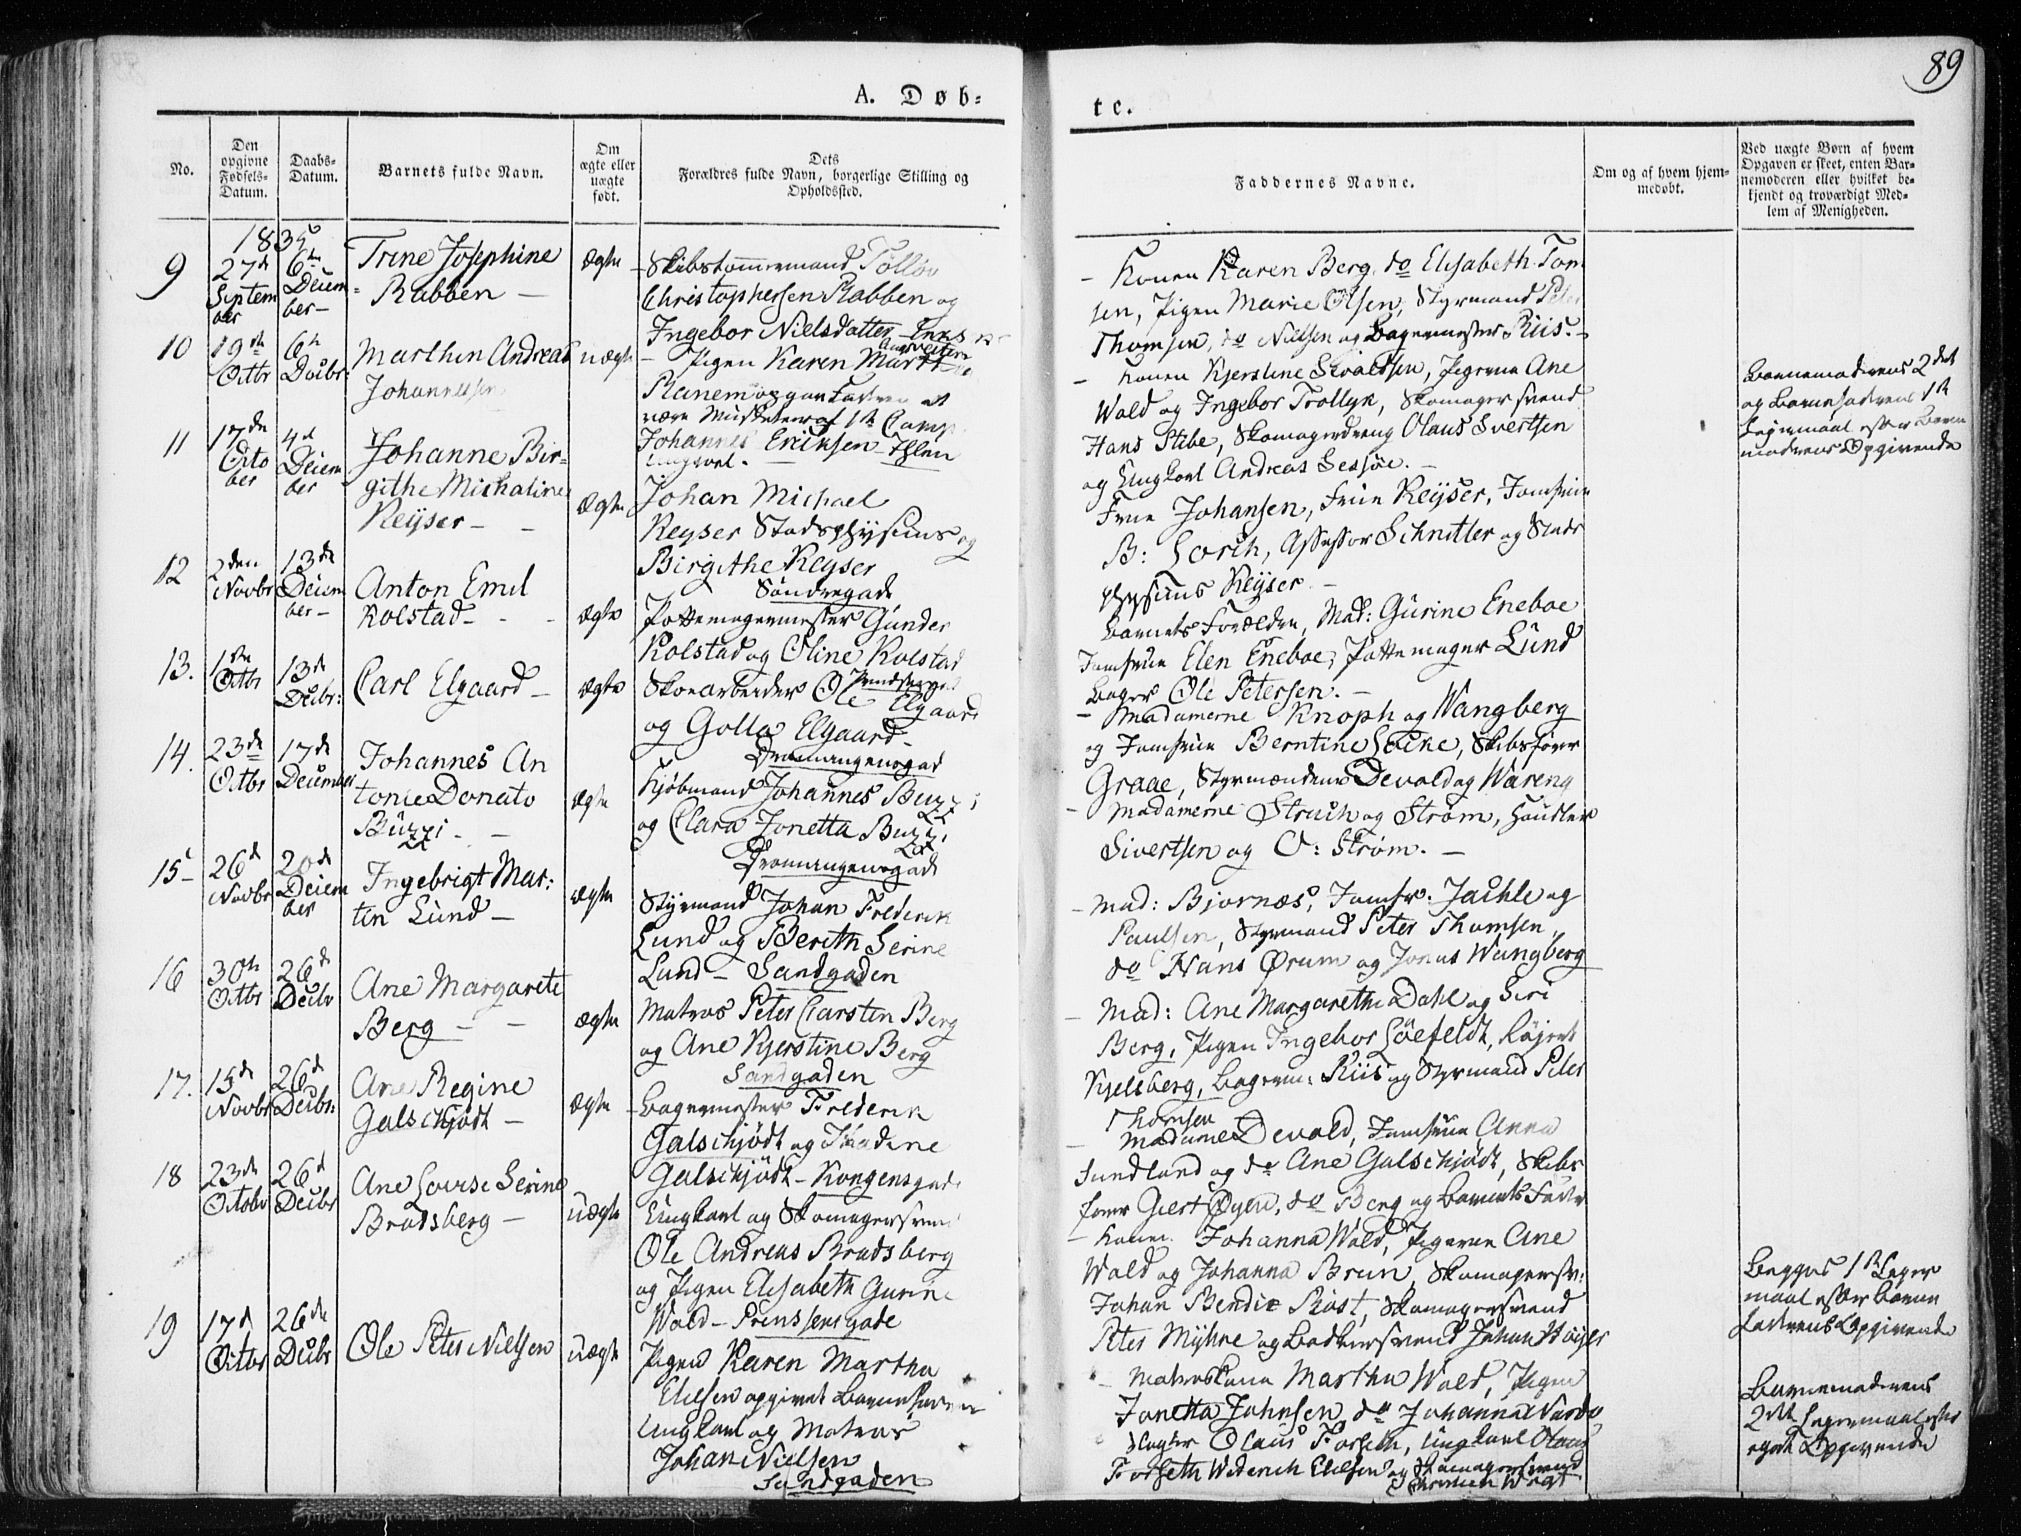 89
A. Døb-
te.
No.
Den
opgivne
Fødsels-
Datum.
Daabs-
Datum.
Barnets fulde Navn.
Om
ægte eller
uægte
født.
Dets
Forældres fulde Navn, borgerlige Stilling og
Opholdssted.
Faddernes Navne.
Om og af hvem hjem-
medøbt.
Ved uægte Børn af hvem
Opgaven er skeet, enten Bar-
nemoderen eller hvilket be-
kjendt og troværdigt Med-
lem af Menigheden.
1835
9
27de
Septem
ber
6te
Decem-
ber
Trine Josephine
Rabben
Ægte
Skibstømmermand Tølløv
Christophersen Rabben og
Ingebor Nielsdatter
Konen Karen Berg, do Elisabeth Tom
sen, Pigen Marie Olsen, Styrmand Peter
Thomsen, do Nielsen og Bagermester Riis.
10
19de
Octbr
6te
Decbr:
Marthin Andreas
Johannessen
uægte
Pigen Karen Marth
Ranem opgav Faderen at
være Musketeer af 1ste Comp.
Johannes Eriksen Ihlen
Ungkarl.
Konen Kjerstine Sivaldsen, Pigerne Ane
Wold og Ingebor Trollyk, Skomagersvend
Hans Stibe, Skomagerdreng Olaus Sivertsen
og Ungkarl Andreas Sessøe.
Barnemoderens 2det
og Barnefaderens 1ste
Leiermaal efter Barne
moderens Opgivende
11
17de
Octo
ber
4de
Decem
ber
Johanne Bir-
githe Michaline
Keyser
Ægte
Johan Michael
Keyser Stadsphysicus og
Birgithe Keyser
Søndregade
Frue Johansen, Frue Keyser, Jomfrue
B: Lorck, Assessor Schnitler og Stads
physicus Keyser.
12
2den
Novbr
13de
Decem
ber
Anton Emil
Kolstad
ægte
Pottemagermester Gunder
Kolstad og Oline Kolstad
Barnets Forældre, Mad: Gurine Eneboe
Jomfrue Elen Eneboe, Pottemager Lund
Bager Ole Petersen.
13.
1ste
Octbr
13de
Decbr:
Carl Elgaard
ægte
Skoearbeider Ole Elgaard
og Golla Elgaard
Dronningensgad
Madamerne Knoph og Wangberg
og Jomfrue Berntine Lücke, Skibsfører
Graae, Styrmændene Devold og Wareng
14.
23de
Octbr
17de
December
Johannes An
tonie Donato
Buzzi
ægte
Kjøbmand Johannes Buzzi
og Clara Jonetta Buzzi
Dronningensgade
Madamerne Struch og Strøm, Handler
Sivertsen og O: Strøm.
15
26de
Novbr
20de
Decem
ber
Ingebrigt Mar-
tin Lund
ægte
Styrmand Johan Frederik
Lund og Berith Serine
Lund - Sandgaden
Mad: Bjornæs, Jomfr: Jachle og
Paulsen, Styrmand Peter Thomsen,
do Hans Ørum og Jonas Wangberg
16
30te
Octbr
26de
Decbr
Ane Margarete
Berg
ægte
Matros Peter Carsten Berg
og Ane Kjerstine Berg
Sandgaden
Mad: Ane Margarethe Dahl og Siri
Berg, Pigen Ingebor Löefeldt, Røjert
Kjelsberg, Bagerm: Riis og Styrmand Peter
Thomsen
17.
15de
Novbr
26de
Decbr:
Ane Regine
Galschjødt
Ægte
Bagermester Frederik
Galschjødt og Thodine
Galschjødt - Kongensgade
Madame Devold, Jomfrue Anna
Sundland og do Ane Galschjødt, Skibs
fører Giert Øyen, do Berg og Barnets Fader
18
23de
Octobr
26de
Decbr
Ane Lovise Serine
Bradsberg
uægte
Ungkarl og Skomagersvend
Ole Andreas Bradsberg
og Pigen Elisabeth Gurine
Wold - Prinssensgade
Konen Johanna Wold, Pigerne Ane
Wold og Johanna Brun, Skomagersv:
Johan Bendix Rost, Skomagersvend
Peter Myhre og Bødkersvend Johan Høyer
Begges 1ste Leier
maal efter Barne
faderens Opgivende
19
17de
Octbr
26de
Decbr
Ole Peter Nielsen
uægte
Pigen Karen Martha
Ellefsen opgivet Barnefader
Ungkarl og Matros
Johan Nielsen
Sandgaden
Matroskone Martha Wold, Pigen
Jonetta Johnsen, do Johanna
Slagter Olaus Forseth, Ungkarl Olaus
Forseth Widerich Ellefsen og Skomagersvend
Wogt
Barnemoderens
2det Leiermaal efter
egen Opgivende